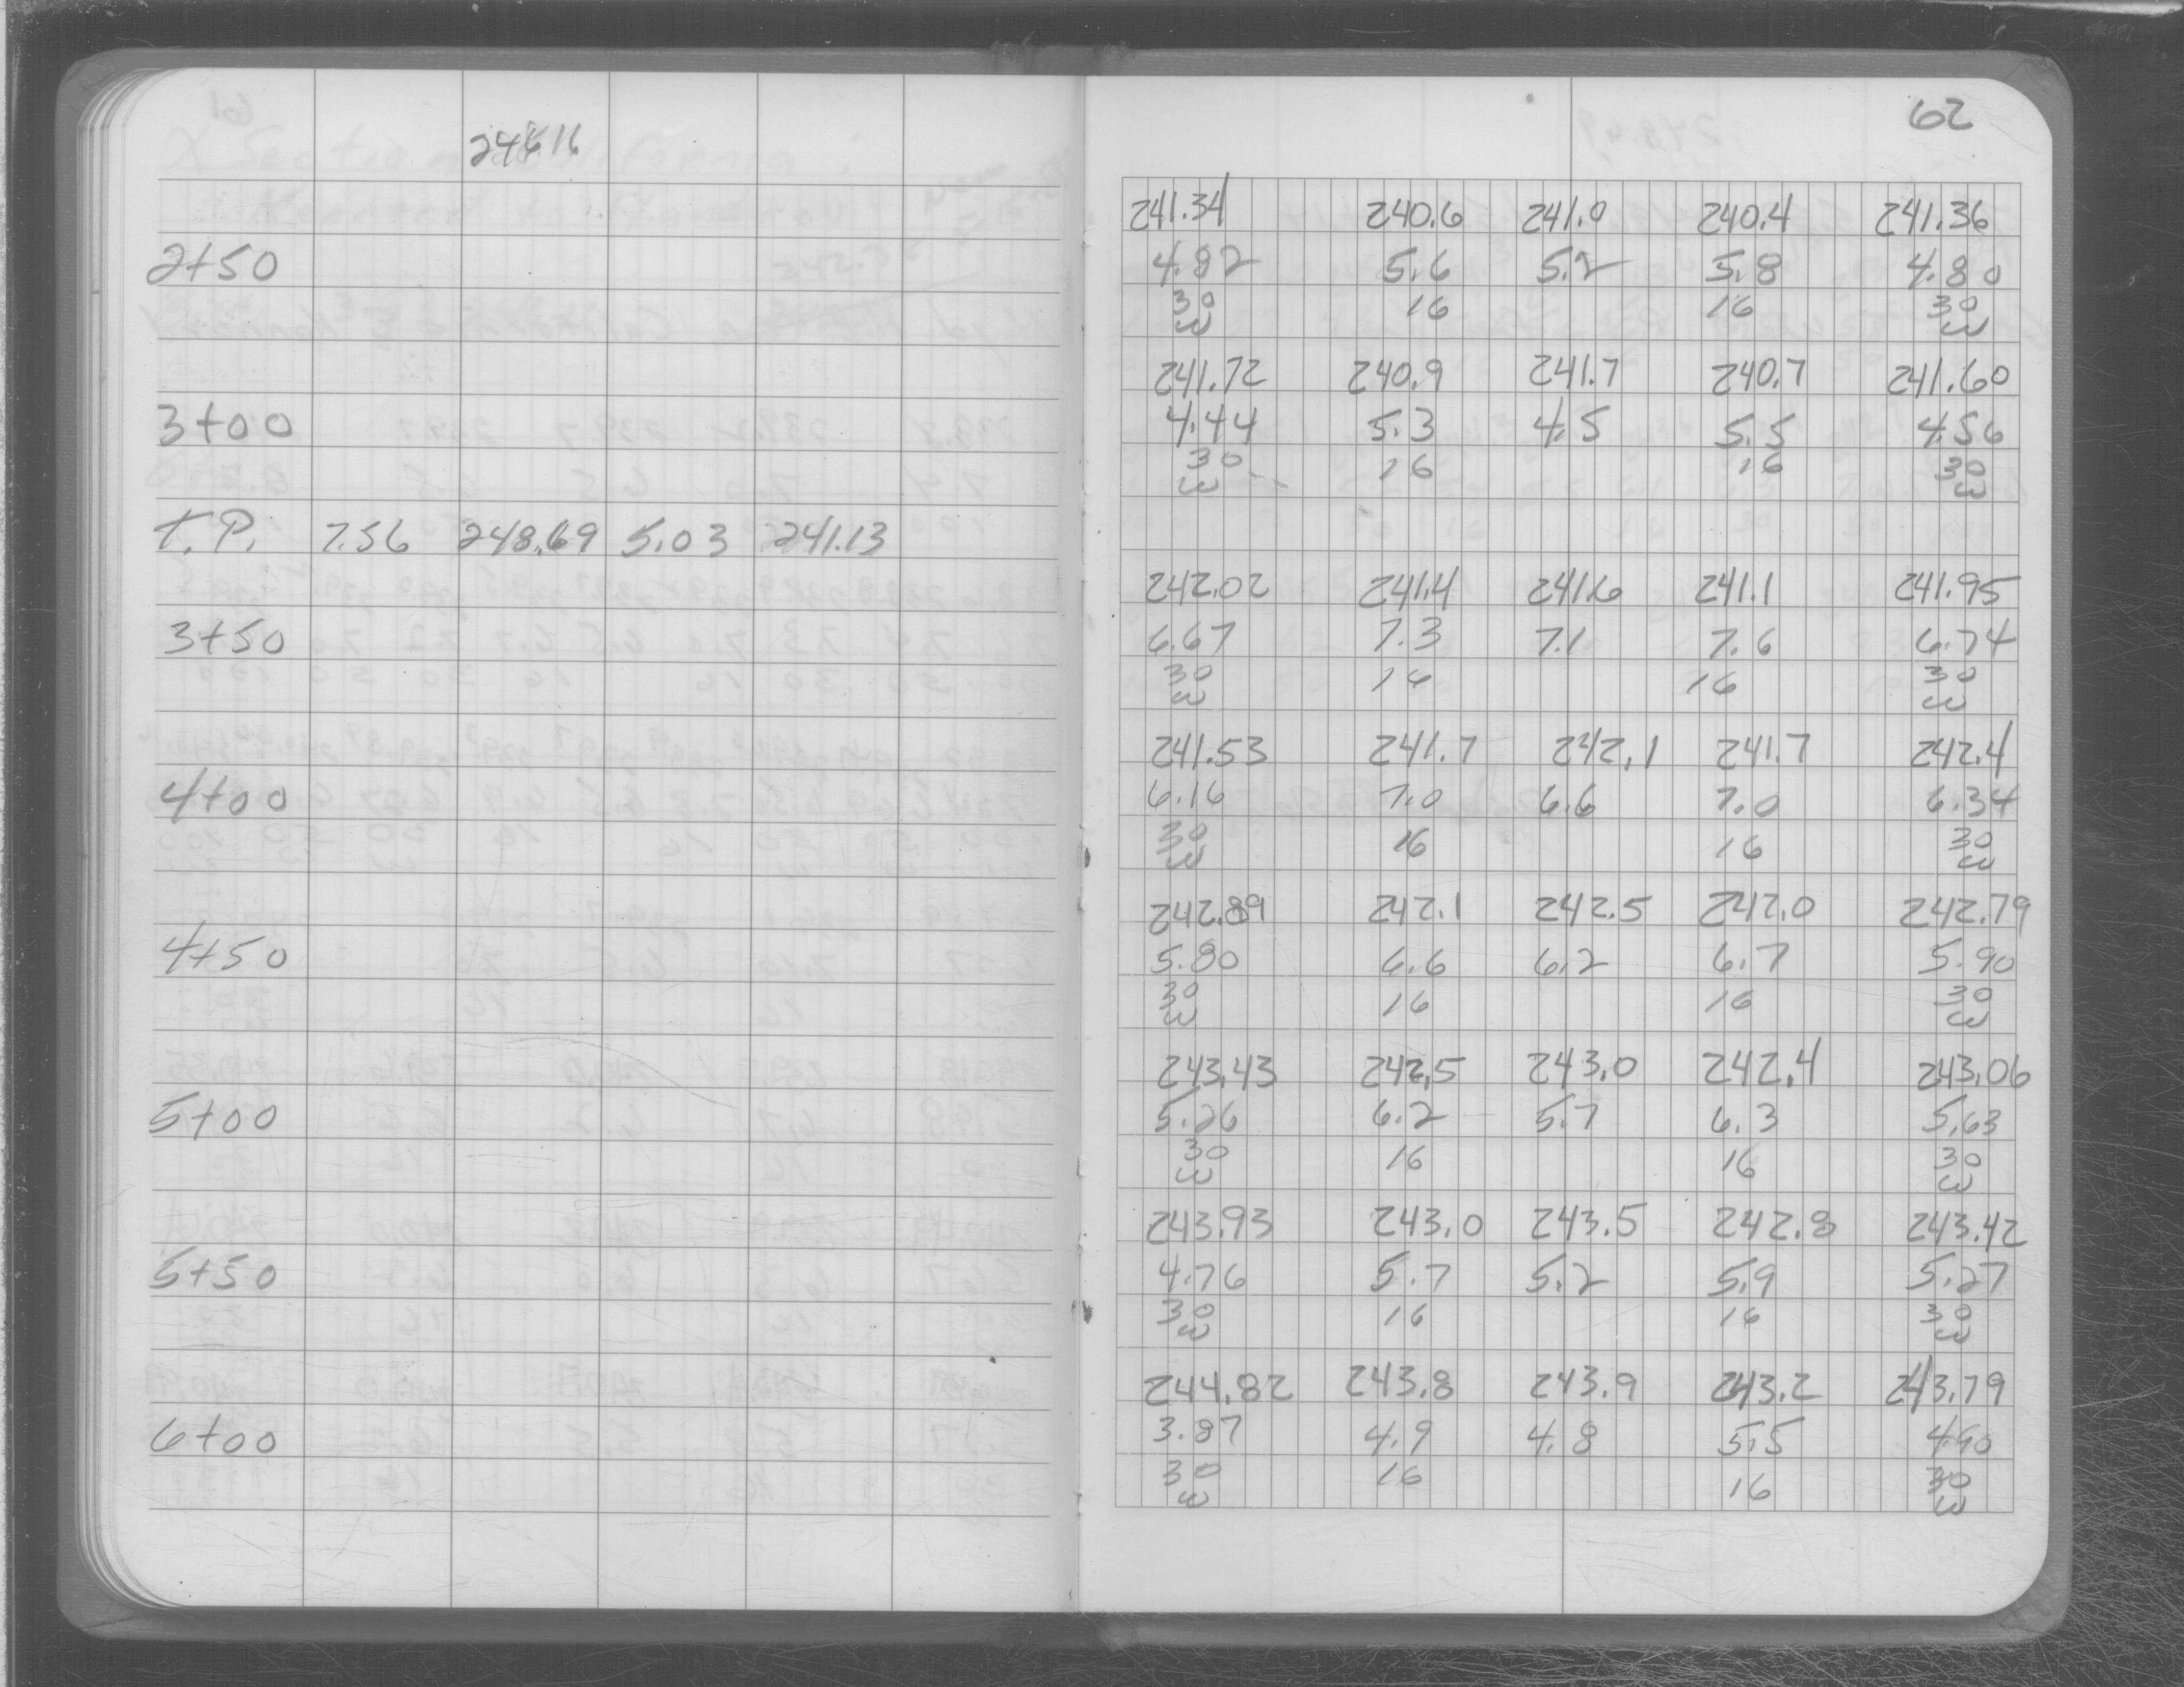 62
246.16
241.34 240.6 241.0 240.4 241.36
2+50 4.82 5.6 5.2 5.8 4.80
30 16 16 30
W W
241.72 240.9 241.7 240.7 241.60
3+00 4.44 5.3 4.5 5.5 4.56
30 16 16 30
W W
T.P. 7.56 248.69 5.03 241.13
242.02 241.4 241.6 241.1 241.95
3+50 6.67 7.3 7.1 7.6 6.74
30 16 16 30
W W
241.53 241.7 242.1 241.7 242.4
4+00 6.16 7.0 6.6 7.0 6.34
30 16 16 30
W W
242.89 242.1 242.5 242.0 242.79
4+50 5.80 6.6 6.2 6.7 5.90
30 16 16 30
W W
243.43 242.5 243.0 242.4 243.06
5+00 5.26 6.2 5.7 6.3 5.63
30 16 16 30
W W
243.93 243.0 243.5 242.8 243.42
5+50 4.76 5.7 5.2 5.9 5.27
30 16 16 30
W W
244.82 243.8 243.9 243.2 243.79
6+00 3.87 4.9 4.8 5.5 4.90
30 16 16 30
W W